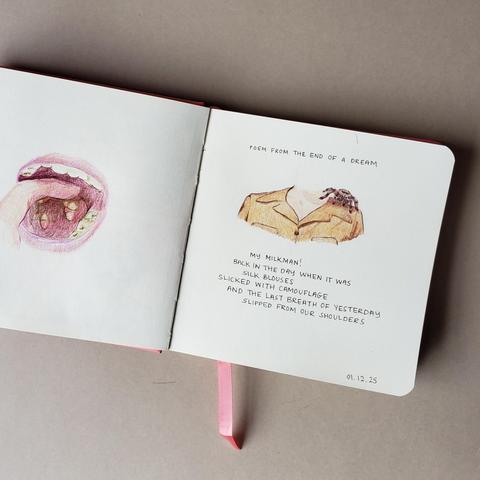 POEM FROM THE END OF A DREAM
MY MILKMAN!
BACK IN THE DAY WHEN IT WAS
SILK BLOUSES
SLICKED WITH CAMOUFLAGE
AND THE LAST BREATH OF YESTERDAY
SLIPPED FROM OUR SHOULDERS
01.12.25